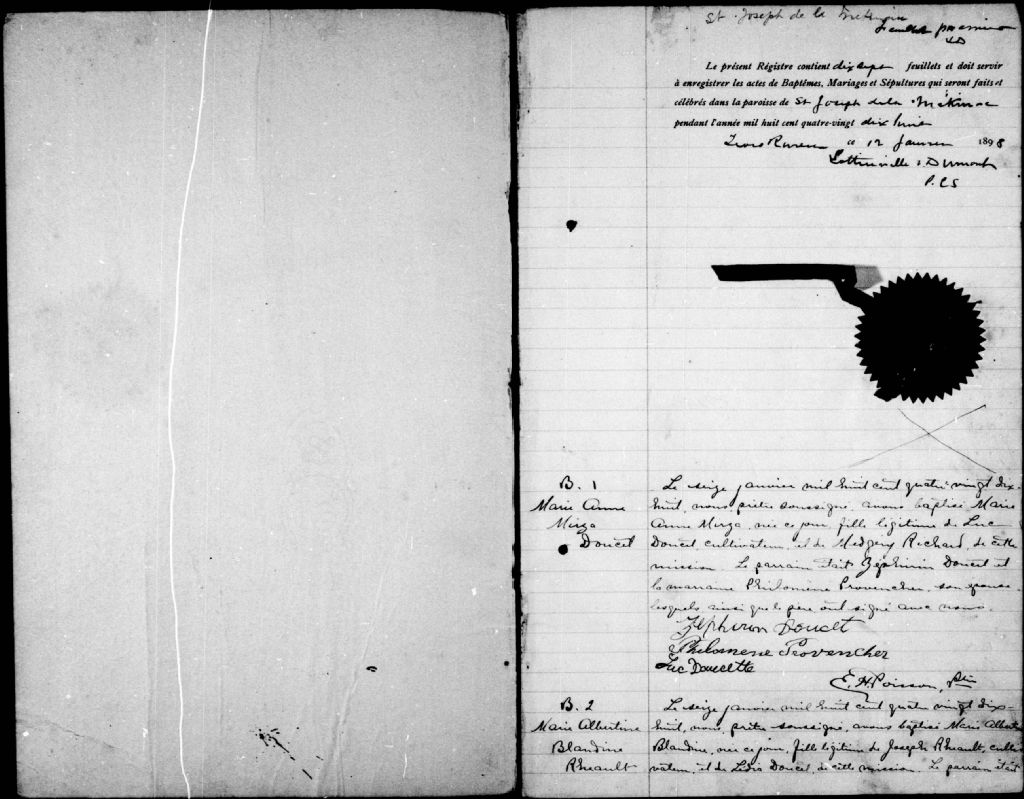 St. Joseph de la Mekinac
feuillet premier
LD
Le présent Régistre contient dix sept feuillets et doit servir
à enregistrer les actes de Baptêmes, Mariages et Sépultures qui seront faits et
célébrés dans la paroisse de St Joseph de la Mékinac
pendant l'année mil huit cent quatre-vingt dix huit
Trois Rivières ce 12 Janvier 1898
Lottinville & Dumont
P.C.S
B. 1
Marie Anne
Mirza
Doucet
Le seize janvier mil huit cent quatre vingt dix-
huit, nous, prêtre soussigné, avons baptisé Marie
Anne Mirza, née ce jour, fille légitime de Luc
Doucet, cultivateur, et de Medgery Richard, de cette
mission. Le parrain était Zéphirin Doucet et
la marraine Philomène Provencher, son épouse
lesquels, ainsi que le père, ont signé avec nous.
Zephiron Doucet
Philomene Provencher
Luc Doucette
E. H. Poisson, Ptre
B. 2
Marie Albertine
Blandine
Rheault
Le seize janvier mil huit cent quatre vingt dix-
huit, nous, prêtre soussigné, avons baptisé Marie Albertine
Blandine, née ce jour, fille légitime de Joseph Rheault, culti-
vateur, et de Lédia Doucet, de cette mission. Le parrain était